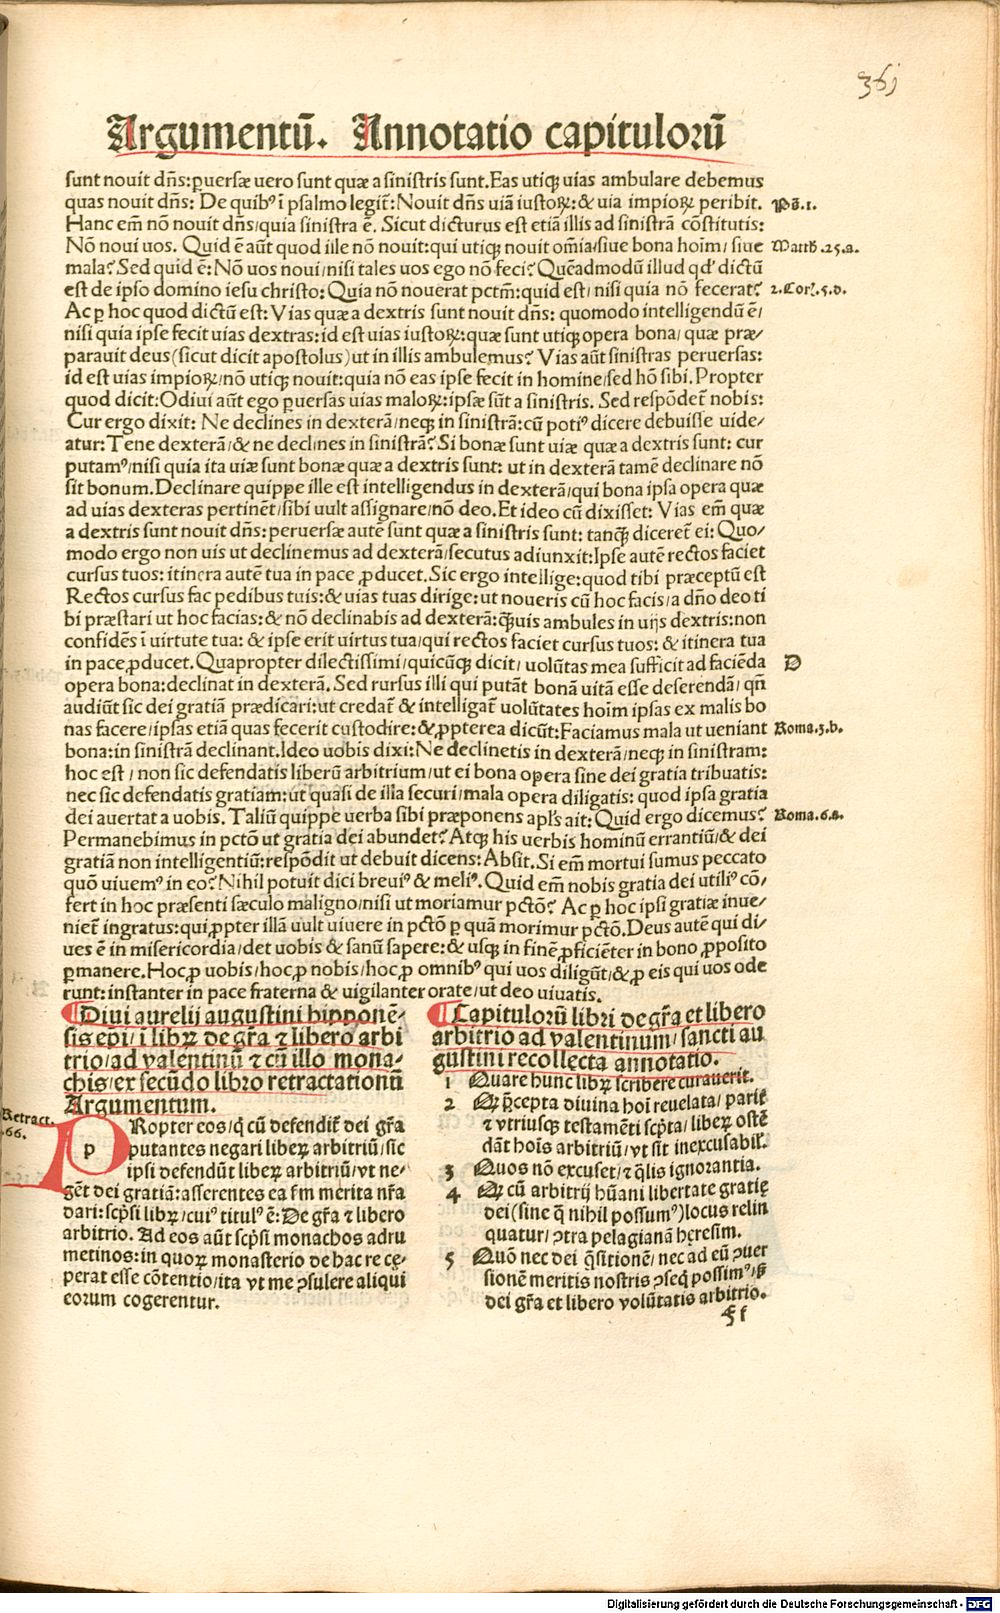 361
Argumentū. Annotatio capitulorū
sunt nouit dn̄s: ꝑuersæ uero sunt quæ a sinistris sunt. Eas utiqꝫ uias ambulare debemus
quas nouit dn̄s: De quibꝰ ī psalmo legit̄: Nouit dn̄s uiā iustoꝝ: & uia impioꝝ peribit. Ps̄.1.
Hanc em̄ nō nouit dn̄s/quia sinistra ē. Sicut dicturus est etiā illis ad sinistrā cōstitutis:
Nō noui uos. Quid ē aūt quod ille nō nouit: qui utiqꝫ nouit om̄ia/siue bona hoīm/siue Matth.25.a.
mala? Sed quid ē: Nō uos noui/nisi tales uos ego nō feci? Quēadmodū illud qd' dictū
est de ipso domino iesu christo: Quia nō nouerat pctm̄: quid est/nisi quia nō fecerat? 2.Corꝭ.5.d.
Ac ꝑ hoc quod dictū est: Vias quæ a dextris sunt nouit dn̄s: quomodo intelligendū ē/
nisi quia ipse fecit uias dextras: id est uias iustoꝝ: quæ sunt utiqꝫ opera bona/quæ præ/
parauit deus (sicut dicit apostolus) ut in illis ambulemus? Vias aūt sinistras peruersas:
id est uias impioꝝ/nō utiqꝫ nouit: quia nō eas ipse fecit in homine/sed hō sibi. Propter
quod dicit: Odiui aūt ego ꝑuersas uias maloꝝ: ipsæ sūt a sinistris. Sed respōdet̄ nobis:
Cur ergo dixit: Ne declines in dexterā/neqꝫ in sinistrā: cū potiꝰ dicere debuisse uide/
atur: Tene dexterā/& ne declines in sinistrā? Si bonæ sunt uiæ quæ a dextris sunt: cur
putamꝰ/nisi quia ita uiæ sunt bonæ quæ a dextris sunt: ut in dexterā tamē declinare nō
sit bonum. Declinare quippe ille est intelligendus in dexterā/qui bona ipsa opera quæ
ad uias dexteras pertinēt/sibi uult assignare/nō deo. Et ideo cū dixisset: Vias em̄ quæ
a dextris sunt nouit dn̄s: peruersæ autē sunt quæ a sinistris sunt: tanꝙ̄ diceret̄ ei: Quo/
modo ergo non uis ut declinemus ad dexterā/secutus adiunxit: Ipse autē rectos faciet
cursus tuos: itinera autē tua in pace ꝓducet. Sic ergo intellige: quod tibi præceptū est
Rectos cursus fac pedibus tuis: & uias tuas dirige: ut noueris cū hoc facis/a dn̄o deo ti
bi præstari ut hoc facias: & nō declinabis ad dexterā: ꝙ̄uis ambules in uijs dextris: non
confidēs ī uirtute tua: & ipse erit uirtus tua/qui rectos faciet cursus tuos: & itinera tua
in pace ꝓducet. Quapropter dilectissimi/quicūqꝫ dicit/uolūtas mea sufficit ad faciēda D
opera bona: declinat in dexterā. Sed rursus illi qui putāt bonā uitā esse deserendā/qn̄
audiūt sic dei gratiā prædicari: ut credat̄ & intelligat̄ uolūtates hoīm ipsas ex malis bo
nas facere/ipsas etiā quas fecerit custodire: & ꝓpterea dicūt: Faciamus mala ut ueniant Roma.3.b.
bona: in sinistrā declinant. Ideo uobis dixi: Ne declinetis in dexterā/neqꝫ in sinistram:
hoc est/non sic defendatis liberū arbitrium/ut ei bona opera sine dei gratia tribuatis:
nec sic defendatis gratiam: ut quasi de illa securi/mala opera diligatis: quod ipsa gratia
dei auertat a uobis. Taliū quippe uerba sibi præponens apl's ait: Quid ergo dicemus? Roma.6.a.
Permanebimus in pctō ut gratia dei abundet? Atqꝫ his uerbis hominū errantiū/& dei
gratiā non intelligentiū: respōdit ut debuit dicens: Absit. Si em̄ mortui sumus peccato
quō uiuemꝰ in eo? Nihil potuit dici breuiꝰ & meliꝰ. Quid em̄ nobis gratia dei utiliꝰ cō/
fert in hoc præsenti sæculo maligno/nisi ut moriamur pctō? Ac ꝑ hoc ipsi gratiæ inue/
niet̄ ingratus: qui ꝓpter illā uult uiuere in pctō ꝑ quā morimur pctō. Deus autē qui di/
ues ē in misericordia/det uobis & sanū sapere: & usqꝫ in finē ꝓficiēter in bono ꝓposito
ꝑmanere. Hoc ꝓ uobis/hoc ꝓ nobis/hoc ꝓ omnibꝰ qui uos diligūt/& ꝓ eis qui uos ode
runt: instanter in pace fraterna & uigilanter orate/ut deo uiuatis.
¶ Diui aurelij augustini hipponē-
sis epī/ī libꝝ de gr̄a ⁊ libero arbi
trio/ad valentinū ⁊ cū illo mona-
chis/ex secūdo libro retractationū
Argumentum.
Retract.
.66.
PRopter eos/q̇ cū defendit̄ dei gr̄a
putantes negari libeꝝ arbitriū/sic
ipsi defendūt libeꝝ arbitriū/vt ne-
gēt dei gratiā: asserentes ea fm merita nr̄a
dari: scp̄si libꝝ/cuiꝰ titulꝰ ē: De gr̄a ⁊ libero
arbitrio. Ad eos aūt scp̄si monachos adru
metinos: in quoꝝ monasterio de hac re cę-
perat esse cōtentio/ita vt me ꝯsulere aliqui
eorum cogerentur.
¶ Capitulorū libri de gr̄a et libero
arbitrio ad valentinum/sancti au
gustini recollecta annotatio.
1 Quare hunc libꝝ scribere curauerit.
2 Qꝫ p̄cepta diuina hoī reuelata/parit̄
⁊ vtriusqꝫ testamēti scp̄ta/libeꝝ ostē
dāt hoīs arbitriū/vt sit inexcusabil'.
3 Quos nō excuset/⁊ q̄lis ignorantia.
4 Qꝫ cū arbitrij hūani libertate gratię
dei (sine q̄ nihil possumꝰ) locus relin
quatur/ꝯtra pelagianā hęresim.
5 Quō nec dei q̄sitionē/nec ad eū ꝯuer
sionē meritis nostris ꝯseq̇ possimꝰ/sꝫ
dei gr̄a et libero volūtatis arbitrio.
Ff
Digitalisierung gefördert durch die Deutsche Forschungsgemeinschaft - DFG